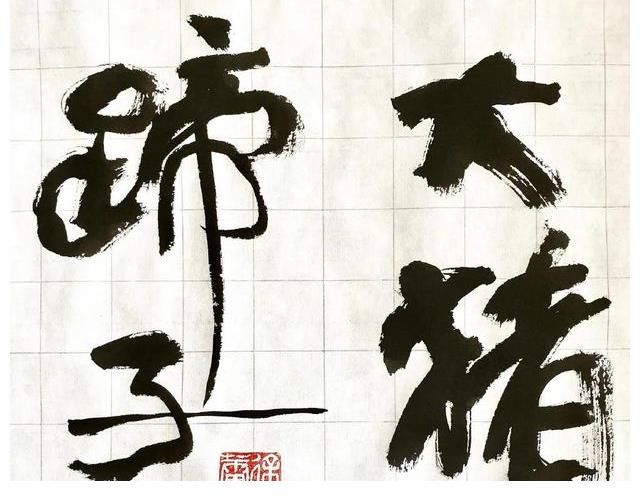 大猪
蹄子